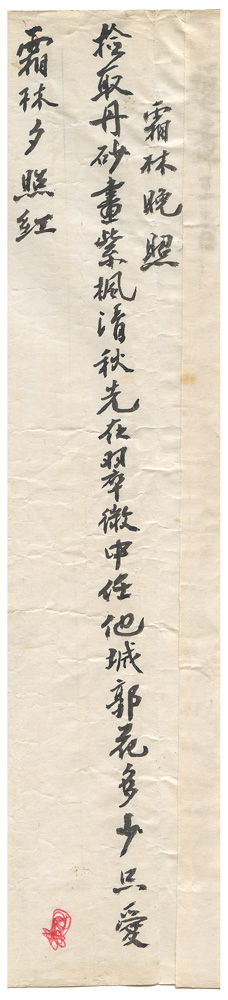 霜林晚照
捡取丹砂畫紫楓清秋先在翠微中任他城郭花多少只愛
霜林夕照紅